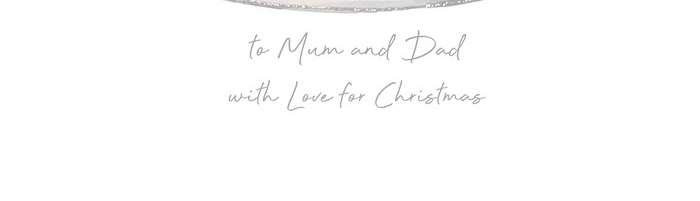 to Mum and Dad
with Love for Christmas